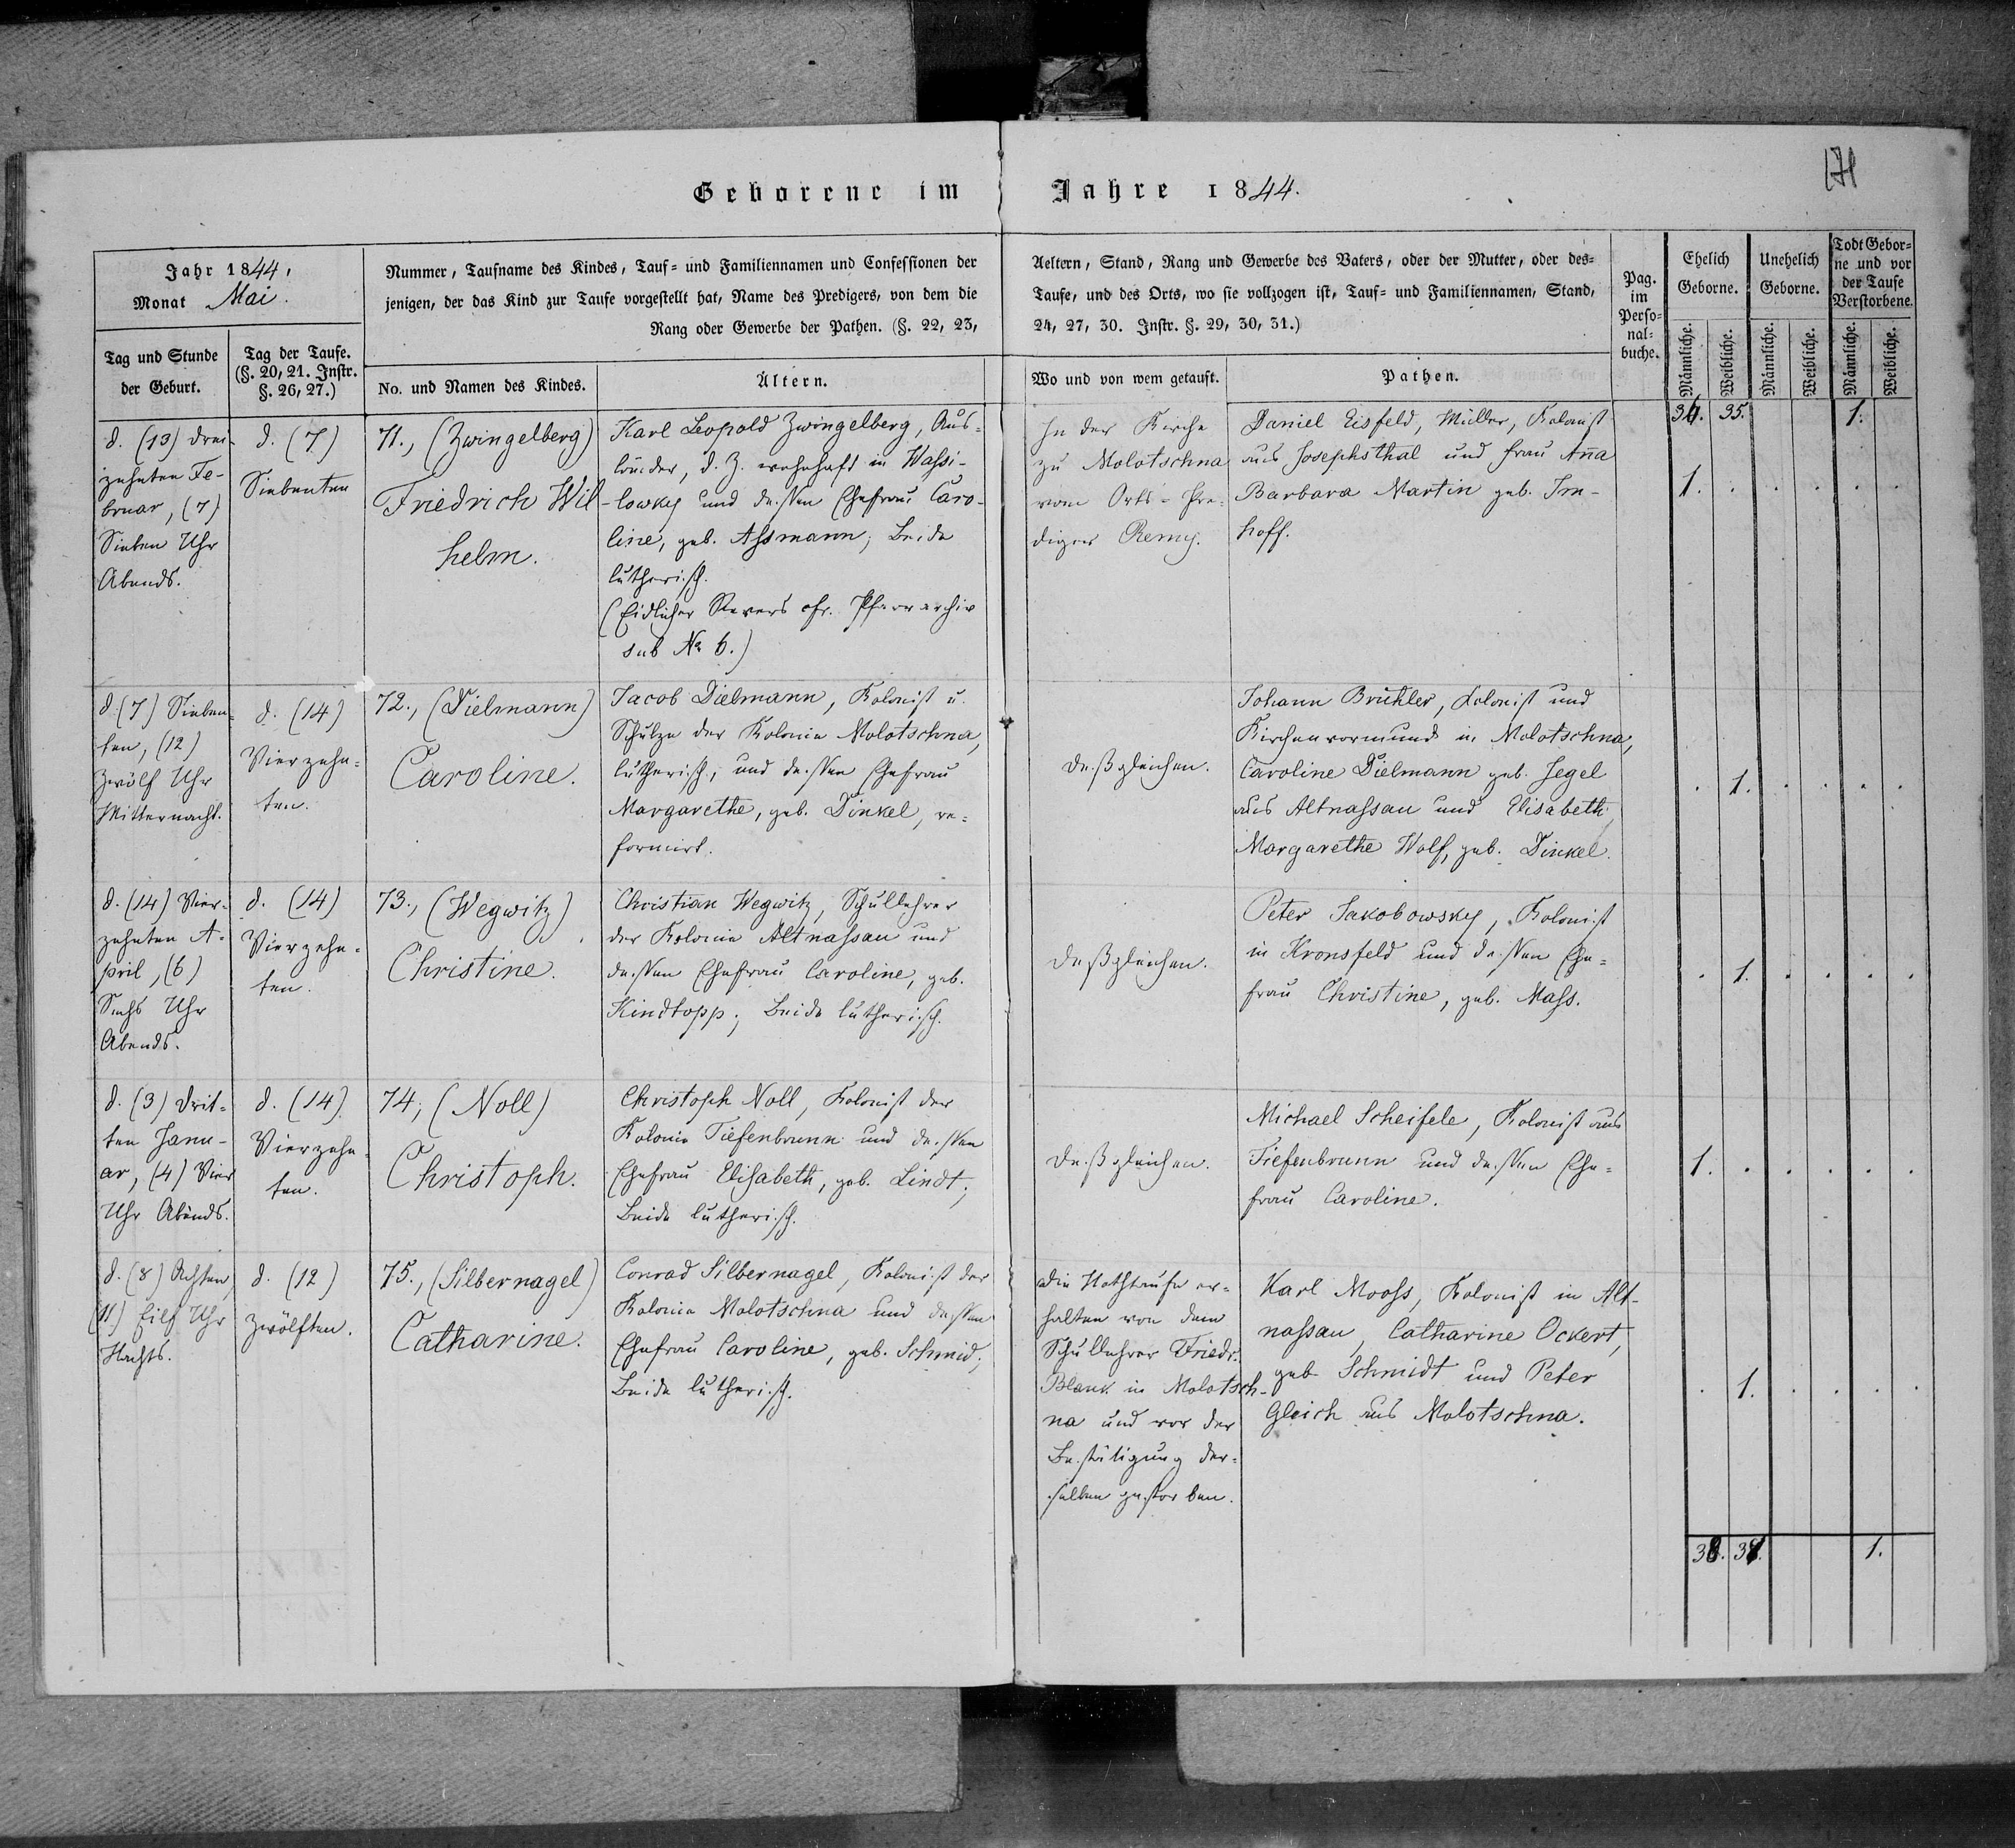 171
Geborene im Jahre 1844.
Jahr 1844,
Monat Mai.
Nummer, Taufname des Kindes, Tauf= und Familiennamen und Confessionen der Aeltern, Stand, Rang und Gewerbe des Vaters, oder der Mutter, oder des=
jenigen, der das Kind zur Taufe vorgestellt hat, Name des Predigers, von dem die Taufe, und des Orts, wo sie vollzogen ist, Tauf= und Familiennamen, Stand,
Rang oder Gewerbe der Pathen. (§. 22, 23, 24, 27, 30. Instr. §. 29, 30, 31.)
Tag und Stunde
der Geburt.
Tag der Taufe.
(§. 20, 21. Instr.
§. 26, 27.)
No. und Namen des Kindes.
Ältern.
Wo und von wem getauft.
Pathen.
Pag.
im
Perso=
nal=
buche.
Ehelich
Geborne.
Unehelich
Geborne.
Todt Gebor=
ne und vor
der Taufe
Verstorbene.
Männliche.
Weibliche.
Männliche.
Weibliche.
Männliche.
Weibliche.
34. 35. 1.
d. (13) drei-
zehnten Fe-
bruar, (7)
Sieben Uhr
Abends.
d. (7)
Siebenten
71., (Zwingelberg)
Friedrich Wil-
helm.
Karl Leopold Zwingelberg, Aus-
länder, d. Z. wohnhaft in Wassi-
lowky und dessen Ehefrau Caro-
line, geb. Assmann; Beide
lutherisch.
(Eidlicher Revers cfr. Pfarrarchiv
sub № 6.)
In der Kirche
zu Molotschna
vom Orts-Pre-
diger Remy.
Daniel Eisfeld, Müller, Kolonist
aus Josephsthal und Frau Anna
Barbara Martin geb. Im-
hoff.
1. . . . . .
d. (7) Sieben-
ten, (12)
Zwölf Uhr
Mitternacht.
d. (14)
Vierzehn-
ten.
72., (Dielmann)
Caroline.
Jacob Dielmann, Kolonist u.
Schulze der Kolonie Molotschna,
lutherisch, und dessen Ehefrau
Margarethe, geb. Dinkel, re-
formirt.
Desßgleichen.
Johann Brühler, Kolonist und
Kirchenvormund in Molotschna,
Caroline Dielmann geb. Jegel
aus Altnassau und Elisabeth
Margarethe Wolf, geb. Dinkel.
. 1. . . . .
d. (14) Vier-
zehnten A-
pril, (6)
Sechs Uhr
Abends.
d. (14)
Vierzehn-
ten.
73., (Wegwitz)
Christine.
Christian Wegwitz, Schullehrer
der Kolonie Altnassau und
dessen Ehefrau Caroline, geb.
Kindtopp; Beide lutherisch.
Desßgleichen.
Peter Jakobowsky, Kolonist
in Kronsfeld und dessen Ehe-
frau Christine, geb. Mass.
. 1. . . . .
d. (3) Drit-
ten Janu-
ar, (4) Vier
Uhr Abends.
d. (14)
Vierzehn-
ten.
74, (Noll)
Christoph.
Christoph Noll, Kolonist der
Kolonie Tiefenbrunn und dessen
Ehefrau Elisabeth, geb. Lindt;
Beide lutherisch.
Desßgleichen.
Michael Scheifele, Kolonist aus
Tiefenbrunn und dessen Ehe-
frau Caroline.
1. . . . . .
d. (8) Achten,
(11) Eilf Uhr
Nachts.
d. (12)
Zwölften.
75., (Silbernagel)
Catharine.
Conrad Silbernagel, Kolonist der
Kolonie Molotschna und dessen
Ehefrau Caroline, geb. Schmid;
Beide lutherisch.
Die Nothtaufe er-
halten von dem
Schullehrer Friedr.
Blank in Molotsch-
na und vor der
Bestätigung der-
selben gestorben.
Karl Mooss, Kolonist in Alt-
nassau, Catharine Ockert,
geb. Schmidt und Peter
Gleich aus Molotschna.
. 1. . . . .
1.